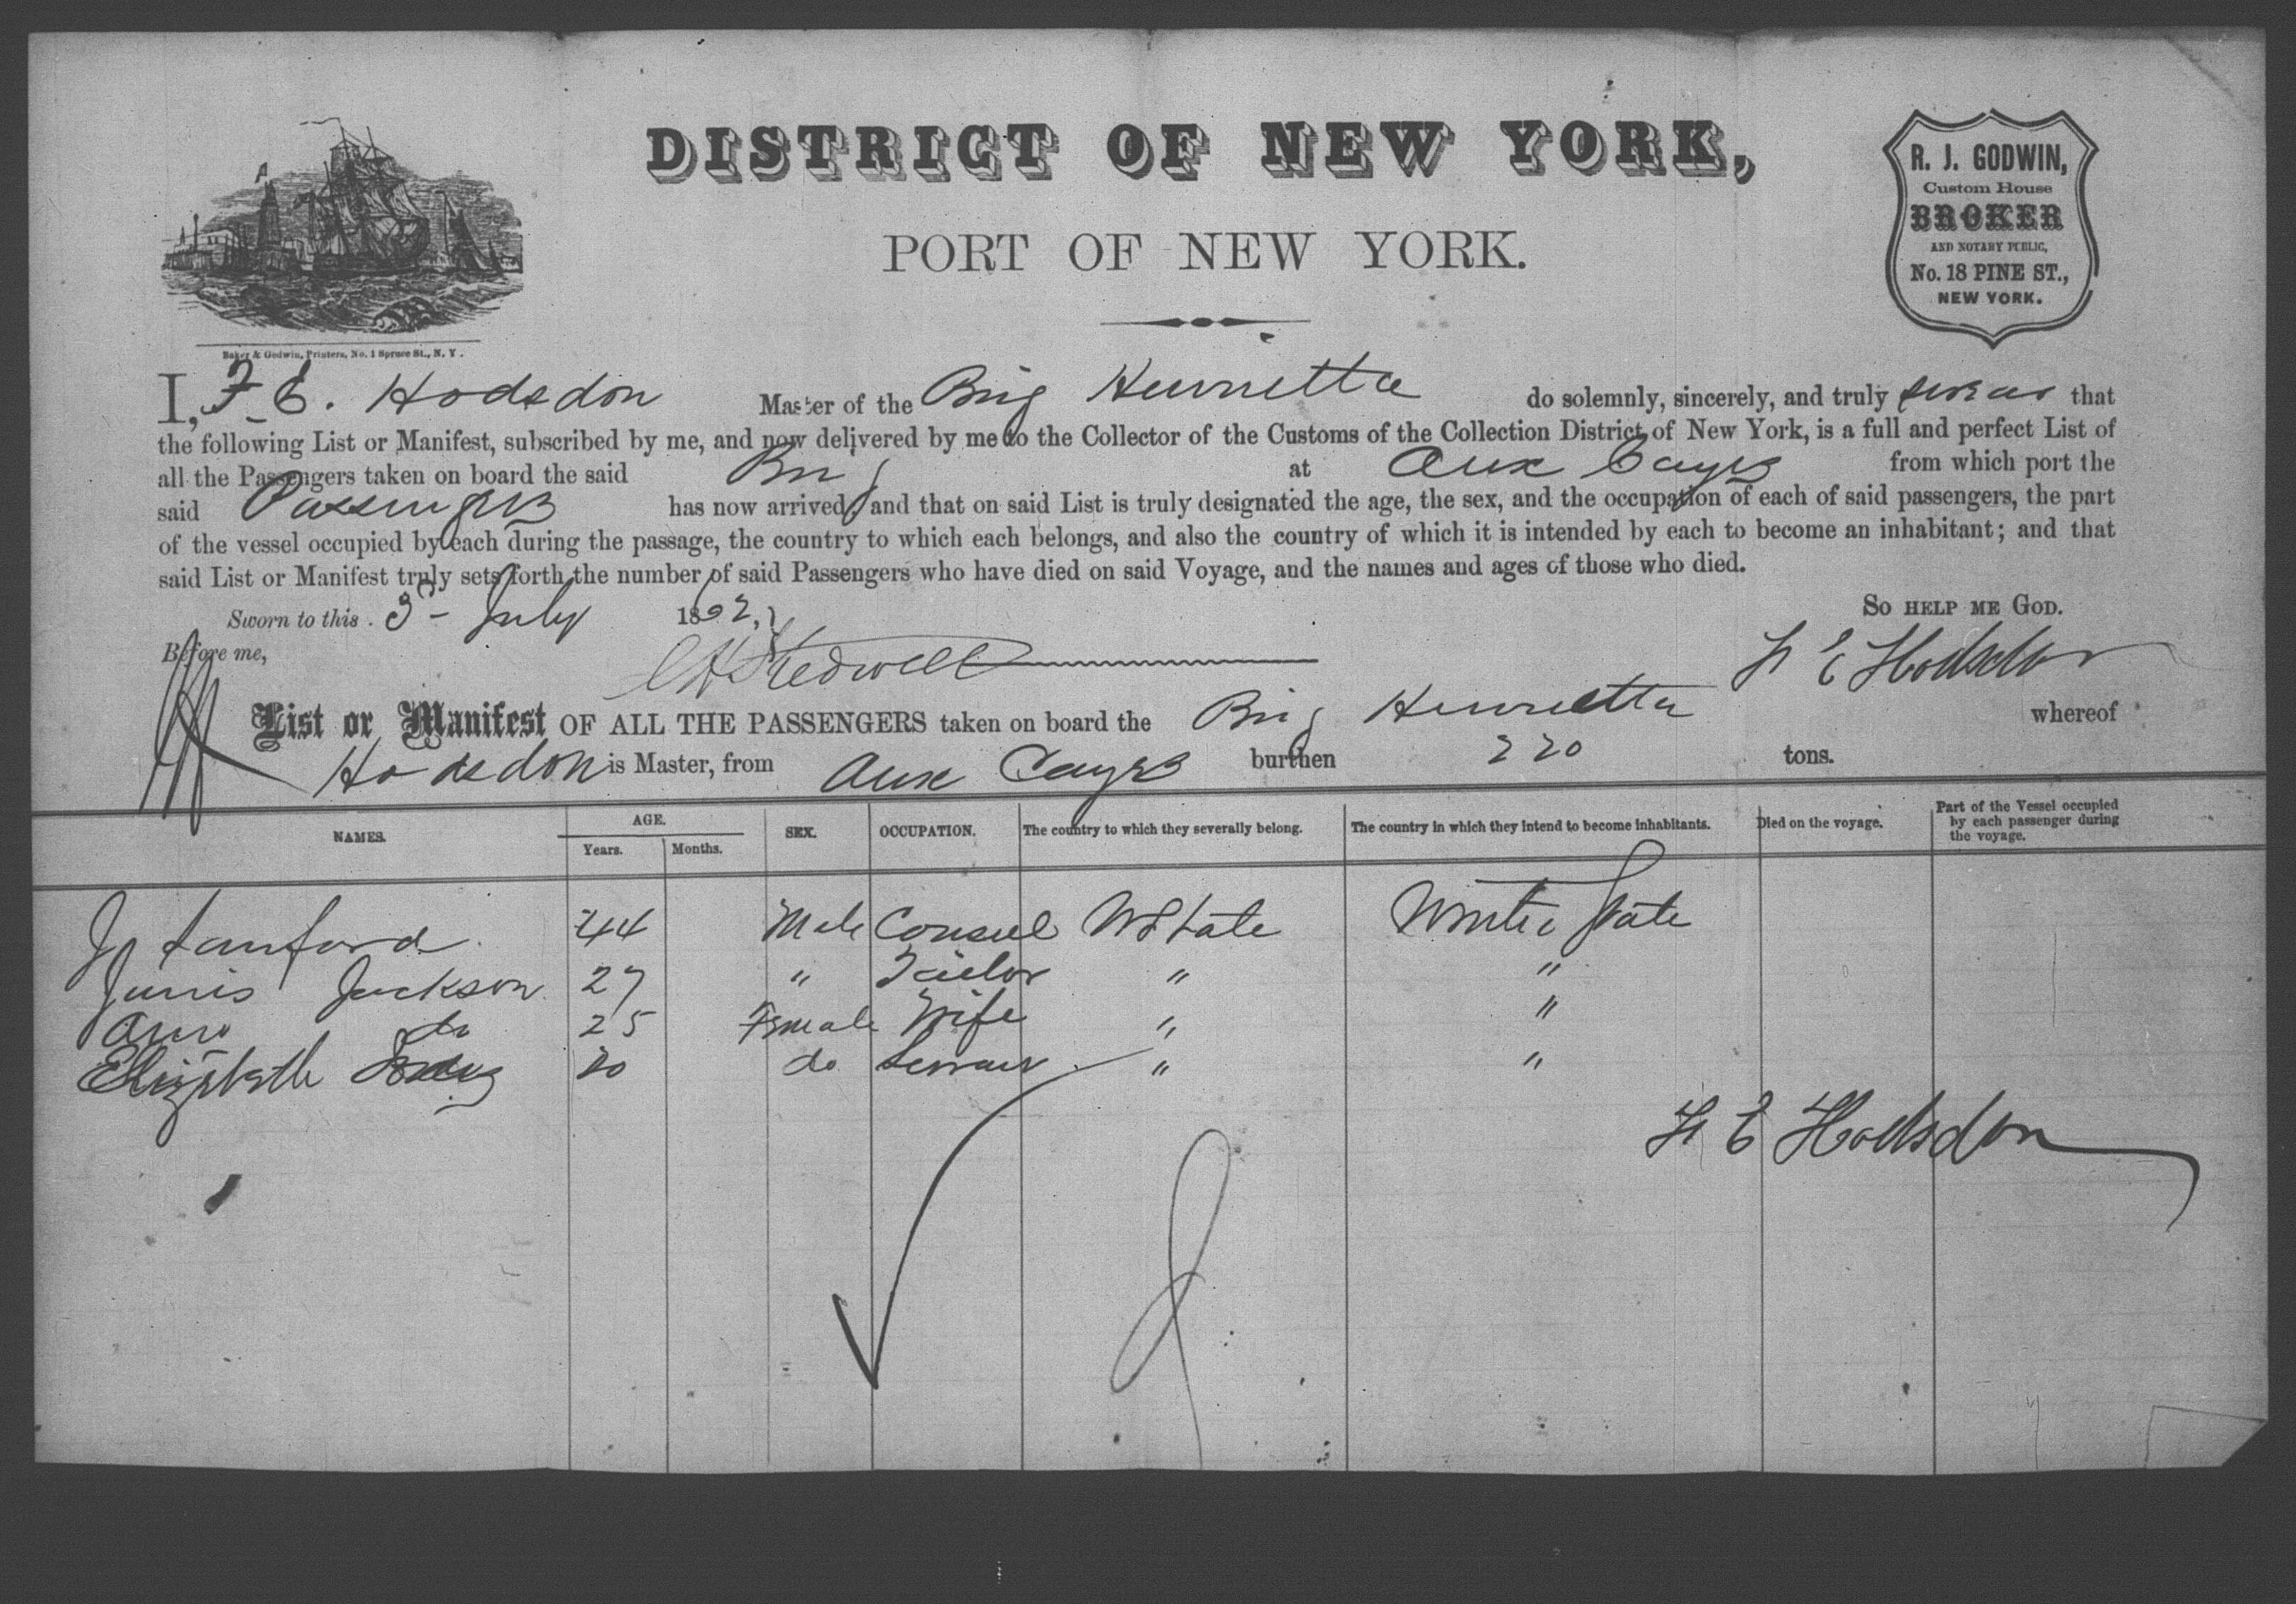 DISTRICT OF NEW YORK,
PORT OF NEW YORK.
R. J. GODWIN,
Custom House
BROKER
AND NOTARY PUBLIC,
No. 18 PINE ST.,
NEW YORK.
Baker & Godwin, Printers, No. 1 Spruce St., N. Y.
I, F. E. Hodsdon Master of the Brig Henrietta do solemnly, sincerely, and truly swear that
the following List or Manifest, subscribed by me, and now delivered by me to the Collector of the Customs of the Collection District of New York, is a full and perfect List of
all the Passengers taken on board the said Brig at Aux Cayes from which port the
said Passengers has now arrived; and that on said List is truly designated the age, the sex, and the occupation of each of said passengers, the part
of the vessel occupied by each during the passage, the country to which each belongs, and also the country of which it is intended by each to become an inhabitant; and that
said List or Manifest truly sets forth the number of said Passengers who have died on said Voyage, and the names and ages of those who died.
Sworn to this 3 July 1862, So help me God.
Before me,
F E Hodsdon
List or Manifest OF ALL THE PASSENGERS taken on board the Brig Henrietta whereof
Hodsdon is Master, from Aux Cayes burthen 220 tons.
NAMES. AGE. Years. Months. SEX. OCCUPATION. The country to which they severally belong. The country in which they intend to become inhabitants. Died on the voyage. Part of the Vessel occupied by each passenger during the voyage.
44 Male Consul State
Jackson 27 " Tailor " "
do 25 Female Wife " "
Elizabeth do " "
F E Hodsdon